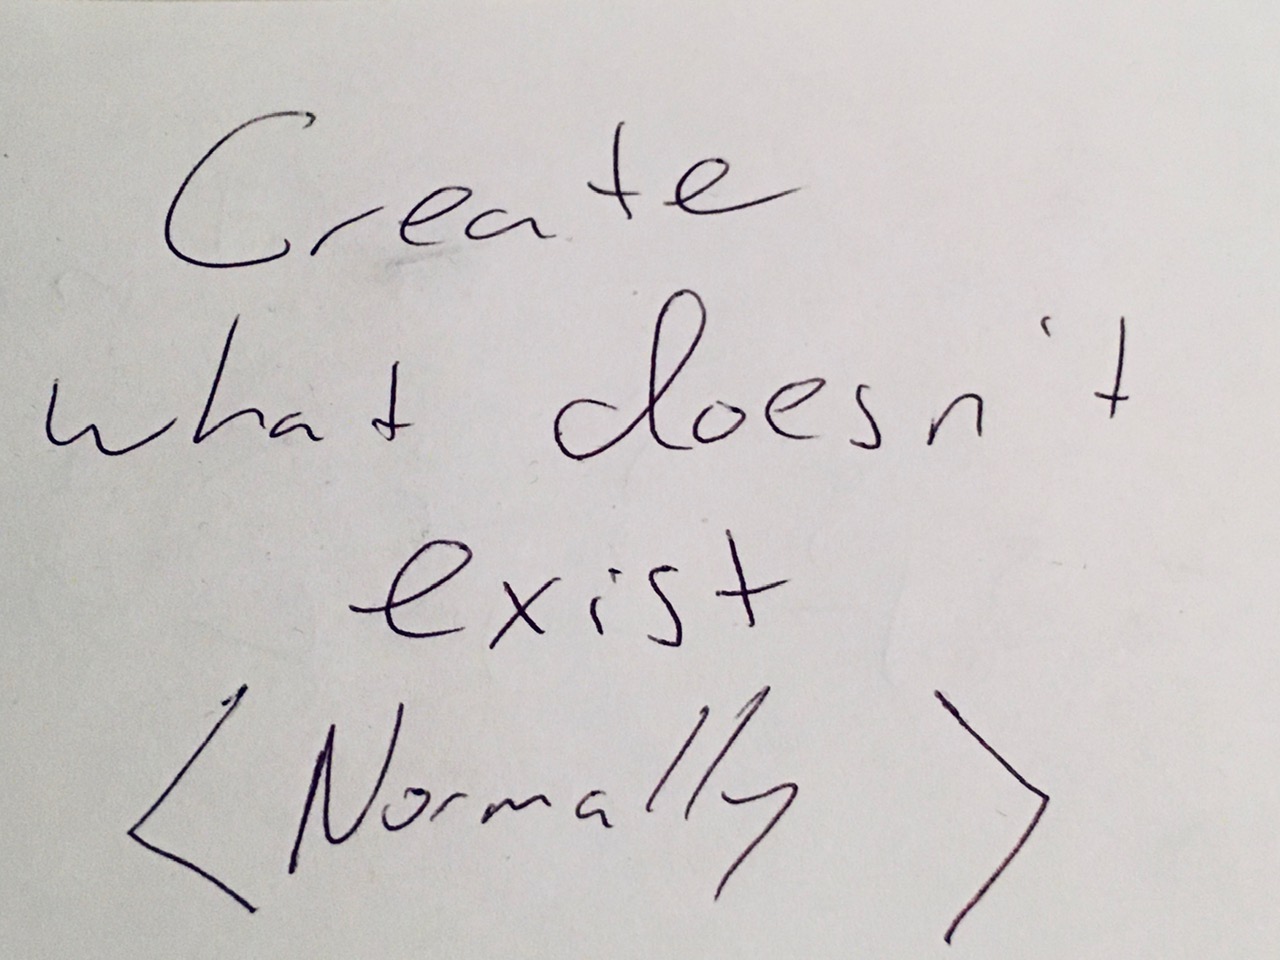 Create
what doesn't
exist
<Normally>